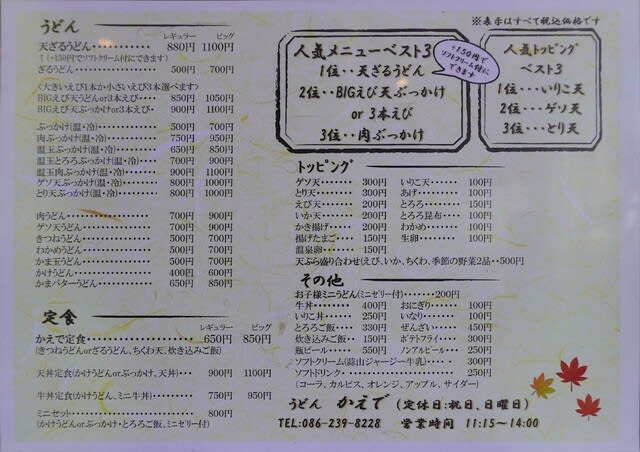 ※表示はすべて税込価格です
うどん
レギュラー ビッグ
天ざるうどん 880円 1100円
↑(+150円でソフトクリーム付にできます)
ざるうどん 500円 700円
〈大きいえび1本か小さいえび3本選べます〉
BIGえび天うどんor3本えび 850円 1050円
BIGえび天ぶっかけor3本えび 900円 1100円
ぶっかけ(温・冷) 500円 700円
肉ぶっかけ(温・冷) 750円 950円
温玉ぶっかけ(温・冷) 650円 850円
温玉とろろぶっかけ(温・冷) 700円 900円
温玉肉ぶっかけ(温・冷) 900円 1100円
ゲソ天ぶっかけ(温・冷) 800円 1000円
とり天ぶっかけ(温・冷) 800円 1000円
肉うどん 700円 900円
ゲソ天うどん 700円 900円
きつねうどん 500円 700円
わかめうどん 500円 700円
かま玉うどん 500円 700円
かけうどん 400円 600円
かまバターうどん 650円 850円
定食
レギュラー ビッグ
かえで定食 650円 850円
(きつねうどんorざるうどん、ちくわ天、炊き込みご飯)
天丼定食(かけうどんorぶっかけ、天丼) 900円 1100円
牛丼定食(かけうどん、ミニ牛丼) 750円 950円
ミニセット 800円
(かけうどんorぶっかけ・とろろご飯、ミニゼリー付)
人気メニューベスト3
1位・・天ざるうどん
2位・・BIGえび天ぶっかけ
or 3本えび
3位・・肉ぶっかけ
+150円で
ソフトクリーム付に
できます
人気トッピング
ベスト3
1位・・・いりこ天
2位・・・ゲソ天
3位・・・とり天
トッピング
ゲソ天 300円 いりこ天 100円
とり天 300円 あげ 100円
えび天 200円 とろろ 150円
いか天 200円 とろろ昆布 100円
かき揚げ 200円 わかめ 100円
揚げたまご 150円 生卵 100円
温泉卵 150円
天ぷら盛り合わせ(えび、いか、ちくわ、季節の野菜2品 500円
その他
お子様ミニうどん(ミニゼリー付) 200円
牛丼 400円 おにぎり 100円
いりこ丼 250円 いなり 100円
とろろご飯 330円 ぜんざい 450円
炊き込みご飯 150円 ポテトフライ 300円
瓶ビール 550円 ノンアルビール 250円
ソフトクリーム(蒜山ジャージー牛乳) 300円
ソフトドリンク 250円
(コーラ、カルピス、オレンジ、アップル、サイダー)
うどん かえで (定休日:祝日、日曜日)
TEL:086-239-8228 営業時間 11:15〜14:00